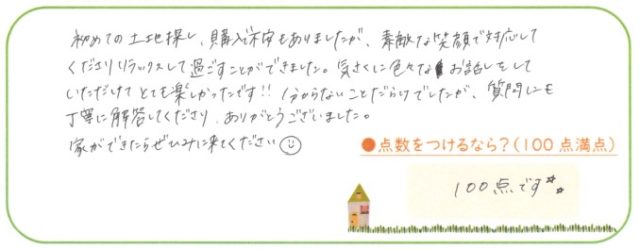 初めての土地探し、購入で不安もありましたが、素敵な笑顔で対応して
くださりリラックスして過ごすことができました。気さくに色々なお話しをして
いただけてとても楽しかったです!!分からないことだらけでしたが、質問にも
丁寧に解答してくださり、ありがとうございました。
家ができたらぜひみに来てください☺
●点数をつけるなら?(100点満点)
100点です